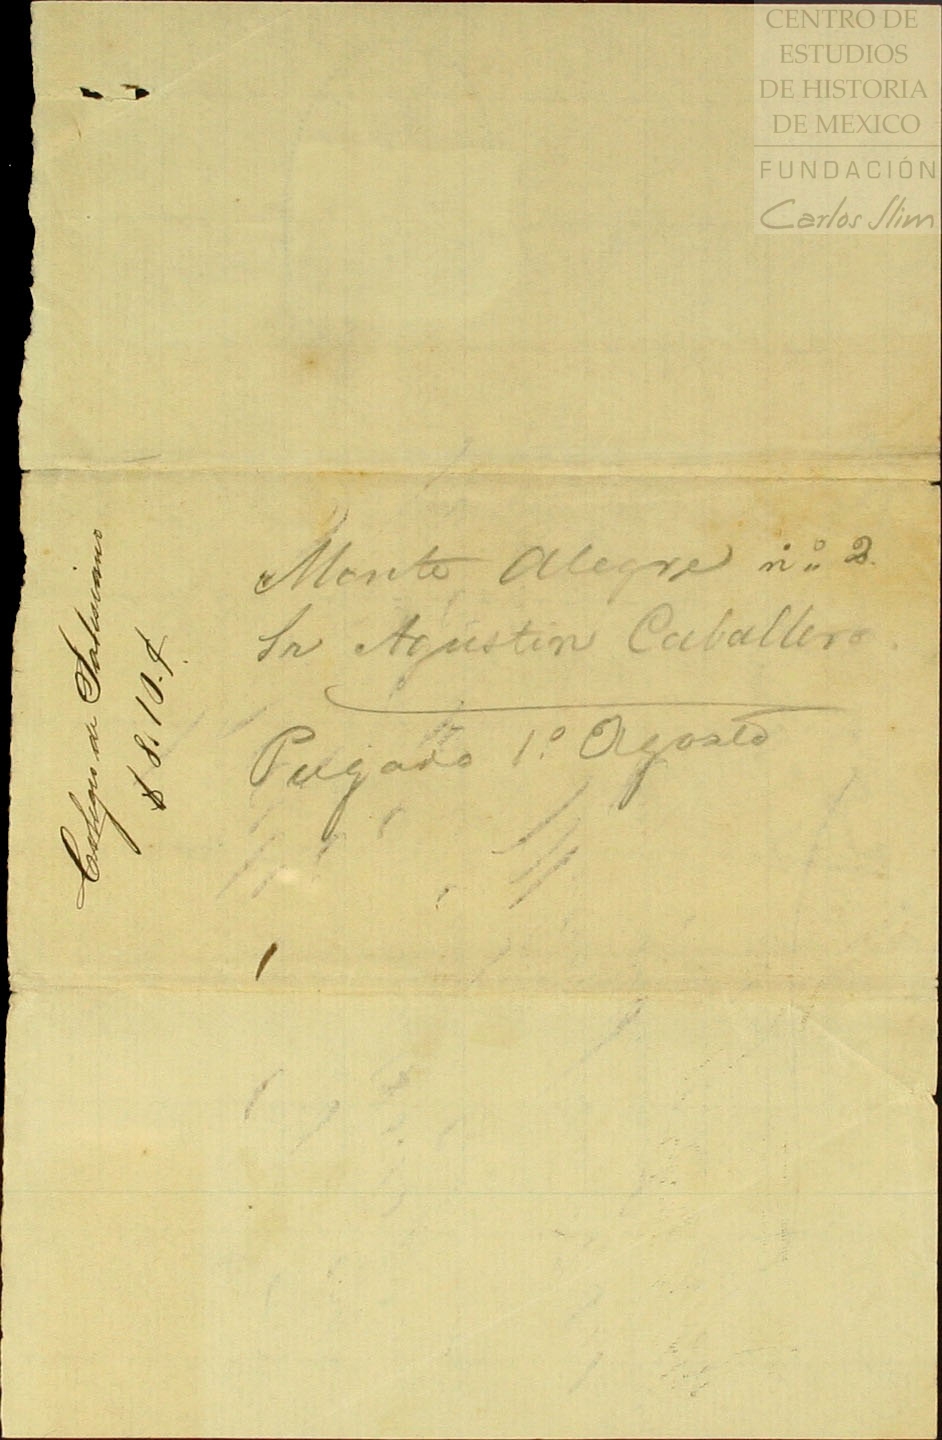 CENTRO DE
ESTUDIOS
DE HISTORIA
DE MEXICO
FUNDACIÓN
Carlos Slim
Monte Alegre nº 2.
Sr Agustin Caballero.
Pagado 1º Agosto
Colegio de Salesiano
$ 8.10.¢.